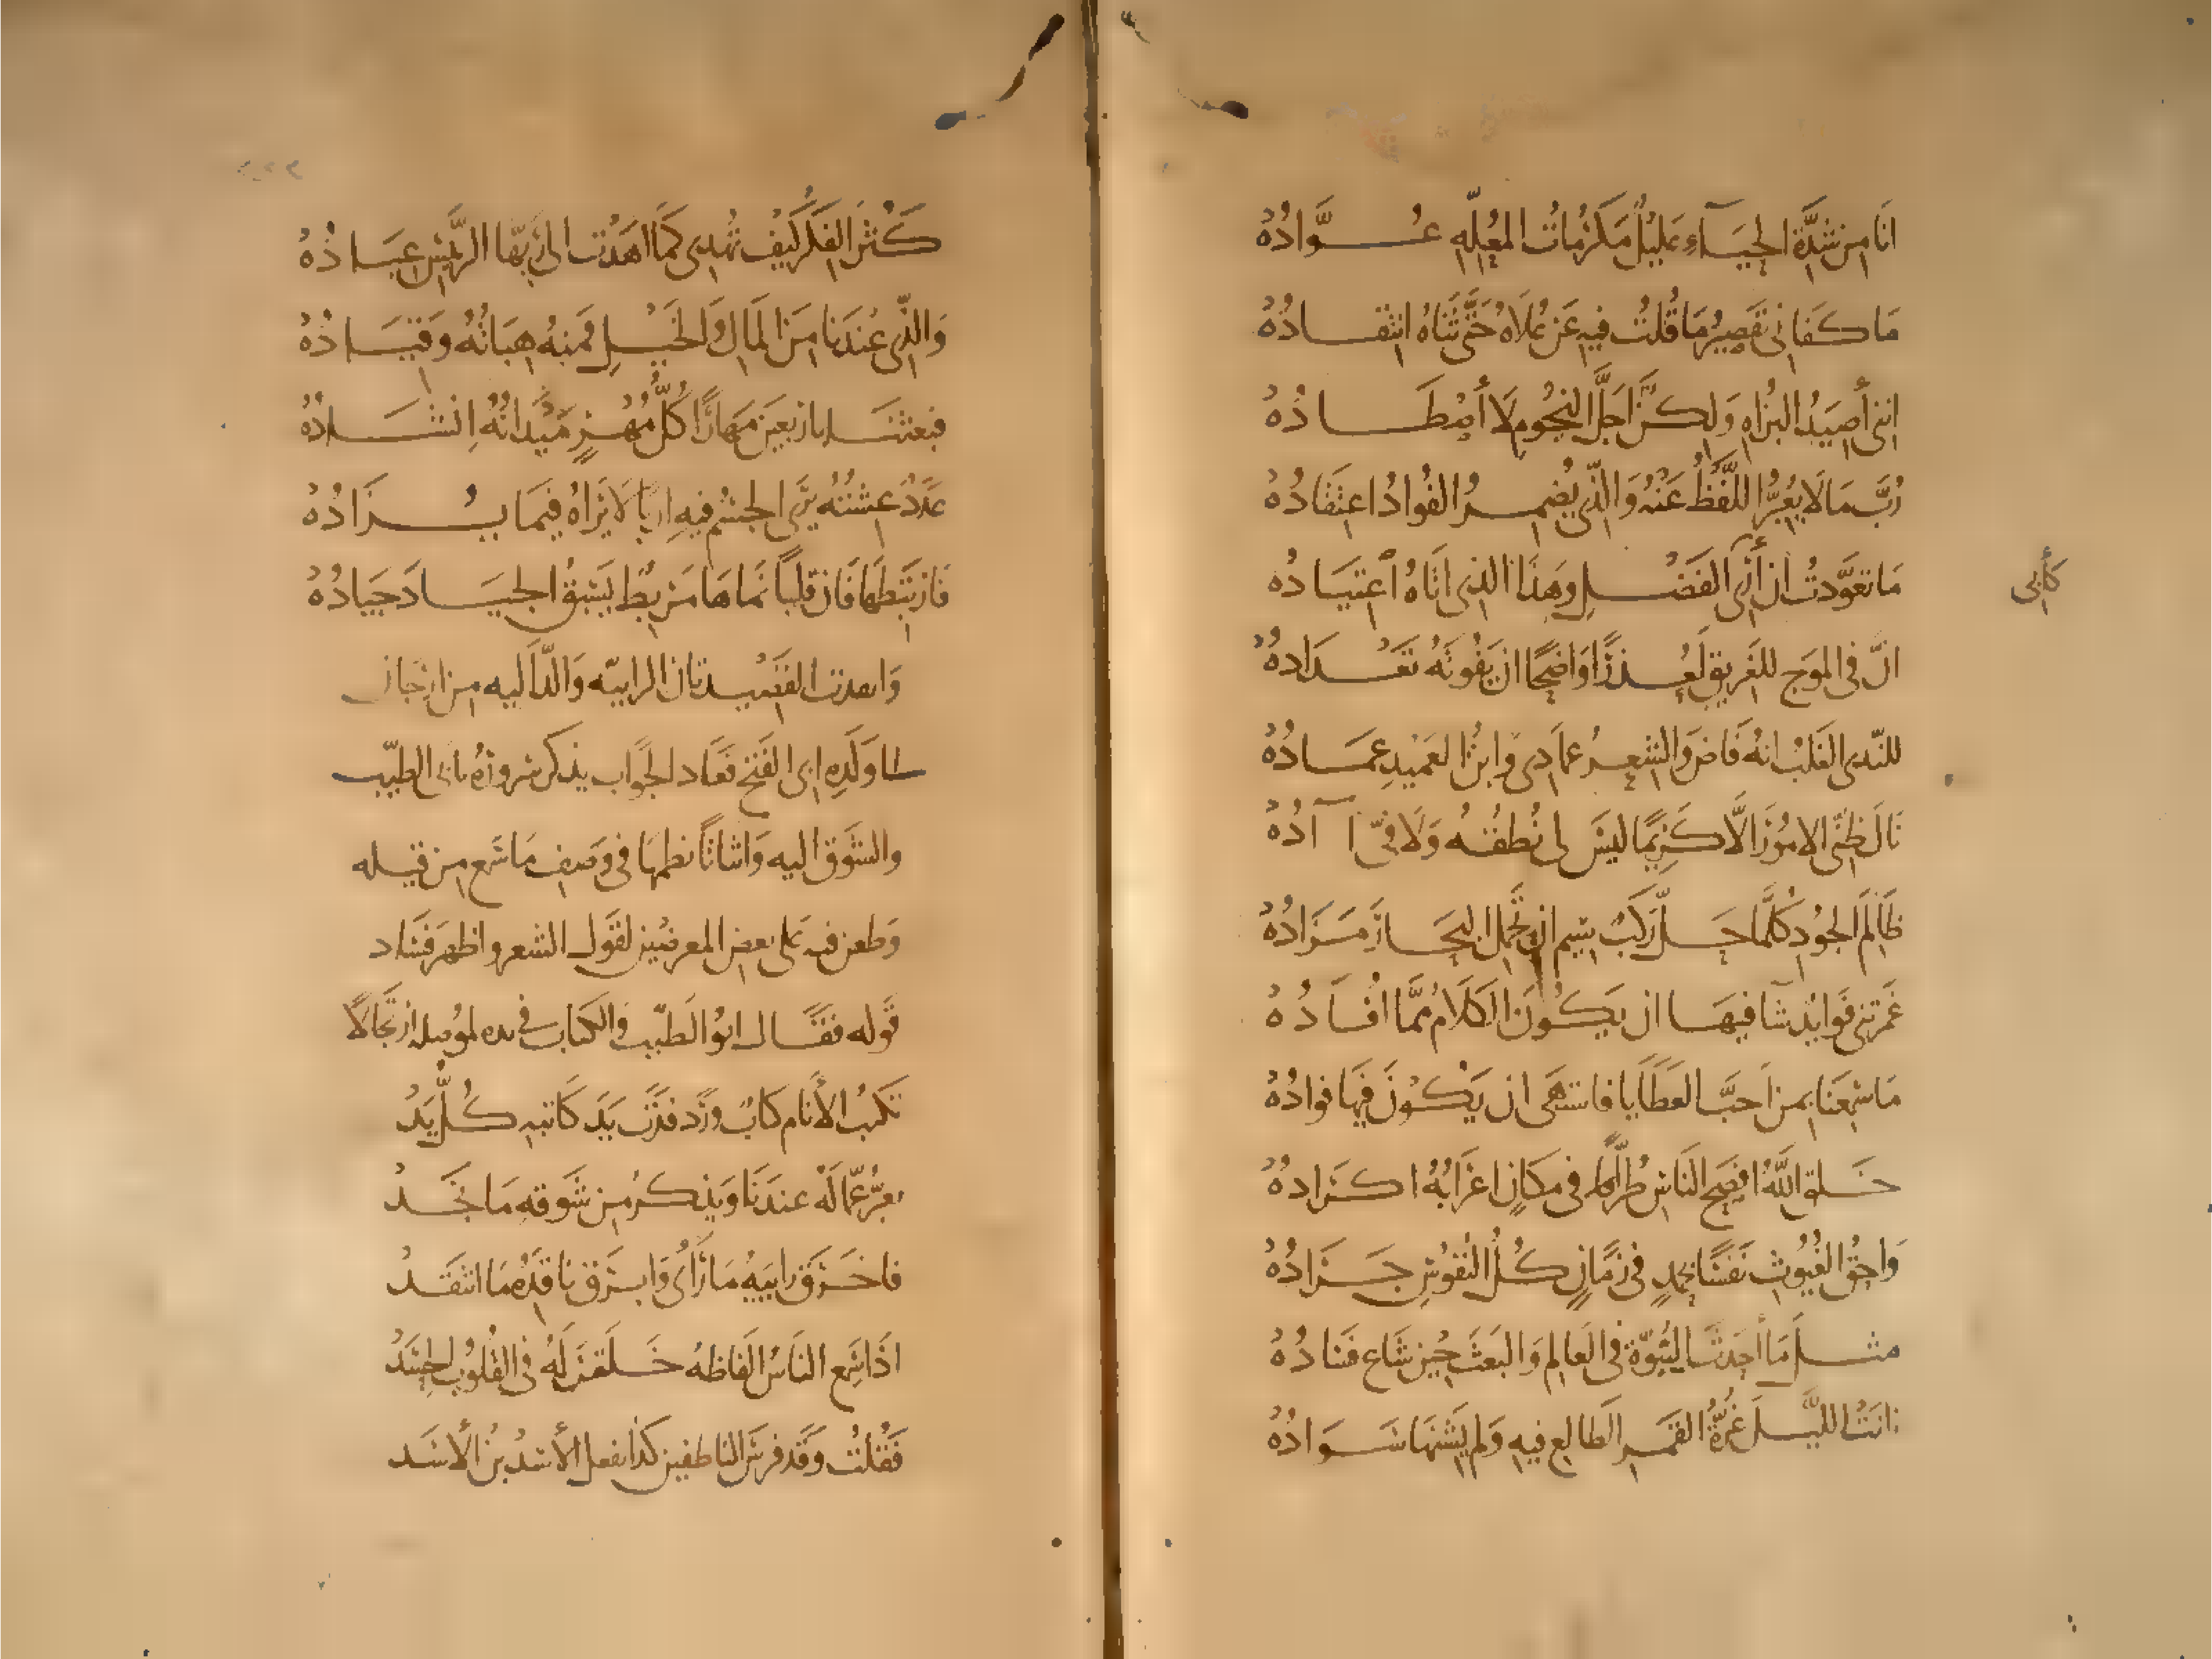 انَا مِن شِدَّةِ الحَيَآءِ عَليْلٌ مَكرُمَاتُ المُعِلِّهِ عُوَّادُهُ
مَا كَفَانِى تَقصِيرُ مَا قُلتُ فيهِ عَن عُلَاهُ حَتَّى ثَنَاهُ انتِقادُهُ
اننى أصِيَدُ البُزَاهِ وَلكِنَّ اَجَلَّ النجُومِ لَا أصْطَادُهُ
رُبَّ مَا لَا يُعَبِّرُ اللَّفظُ عَنْهُ وَالَّذِى يُضمِرُ الفُوادُ اعتِقَادُهُ
مَا تعَوَّدتُ ان أَرَى الفَضْلِ وهَذَا الذى اتَاهُ اعْتِيَادُه
كَأبى
انَّ فى المَوج للغَرِيقِ لَعُذرًا وَاضِحًا ان يَفُوتَهُ تَعْدَادهُ
للنّدى الغَلبُ انهُ فَاضَ وَالشِعرُ عمَادِى وَابنُ العَمِيْدِ عِمَادُهُ
نَالَ ظَنِّى الامُوْرَ الَّا كَرِيمًا ليَسَ لى نُطقُهُ وَلَا فِىَّ آدُهُ
ظَالِمَ الجُودِ كُلَّمَا حَلَّ رَكبٌ سِيم ان تحْمِلَ البحَارَ مَزَادُهُ
غَمَرتنى فَوَايدٌ شآ فيهَا ان يَكُونَ الكَلَامُ مِمَّا افَادُهُ
مَا سَمِعنَا بِمن اَحَبَّ العَطَايَا فاشتَهَى ان يَكُوْنَ فِيهَا فوادُهُ
خَلقَ اللَّهُ افصَحَ النَاسِ طُرًّا فى مَكانٍ اعرَابُهُ اكرَادهُ
وَاحَقَّ الغُيُوثِ نَفسًا بحَمدٍ فى زمَانٍ كُلُّ النُفُوسِ جَرَادُهُ
مثلَ مَا أحدَثَ النُبُوّةَ فى العَالِمِ وَالبَعثَ حِينَ شَاعَ فَسَادُهُ
زانَتِ الليَّلَ غُرَّةُ القمَرِ الطَالِعِ فيهِ وَلم يَشِنْهَا سَوَادُهُ
كَثُرَ الفِكرُ كيَفَ نُهدِى كمَا اهَدَت الى رَبّهَا الرَّئِيسِ عِبَادُهُ
وَالذِّى عِندَنا مِنَ المَالِ وَالخَيْلِ فَمنهُ هِبَاتُهُ وَقِيَادُهُ
فبعثنَا باربعِينَ مَهَارًا كُلُّ مُهْرٍ مَيْدانُهُ اِنشَادُهُ
عَدَدٌ عِشتَهُ يَرَى الجسْمُ فيهِ اربًا لَا يَرَاهُ فيمَا يُزَادُهُ
فَارتَبِطهَا فَان قَلبًا نَمَاهَا مَربِطٌ يَسْبِقُ الجيَادَ جيَادُهُ
وَانفدت القَصْيدتان الرابيّه وَالدّاليه مِن ارجَان
الى وَلَدِهِ ابى الفَتح فعَاد الجوَاب يذكر سُرورَهُ بابى الطيّب
والشَوق اليه وَابياتًا نظمهَا فى وَصِف مَا سَمِع مِن قيله
وَطعن فيه عَلى بعض المعرضيْن لقَول الشعر واظهَر فسَاد
قَوله فقَال ابوُ الطَيّب وَالكتاب فى يده لموصله ارتجَالًا
بكتب الأنَام كتابٌ وَرَد فَدَت يَدَ كَاتبِهِ كُلُّ يَدْ
يعبّرُ عمّا لَهُ عندَنَا وَيَذكرُ مِن شَوقهِ مَا نجَدْ
فاخرَقَ رايَيهُ مَا رَأَى وَابرَقَ نَاقِدَهُ مَا انتَقَدْ
اذَا سَمِعَ النَاسُ الفَاظهُ خَلَقنَ لَهُ فى القُلُوبِ الحَسَدْ
فقُلتُ وَقَد فرسَ النَاطقينَ كذَا يفعل الأسَدُ بنُ الأسَد